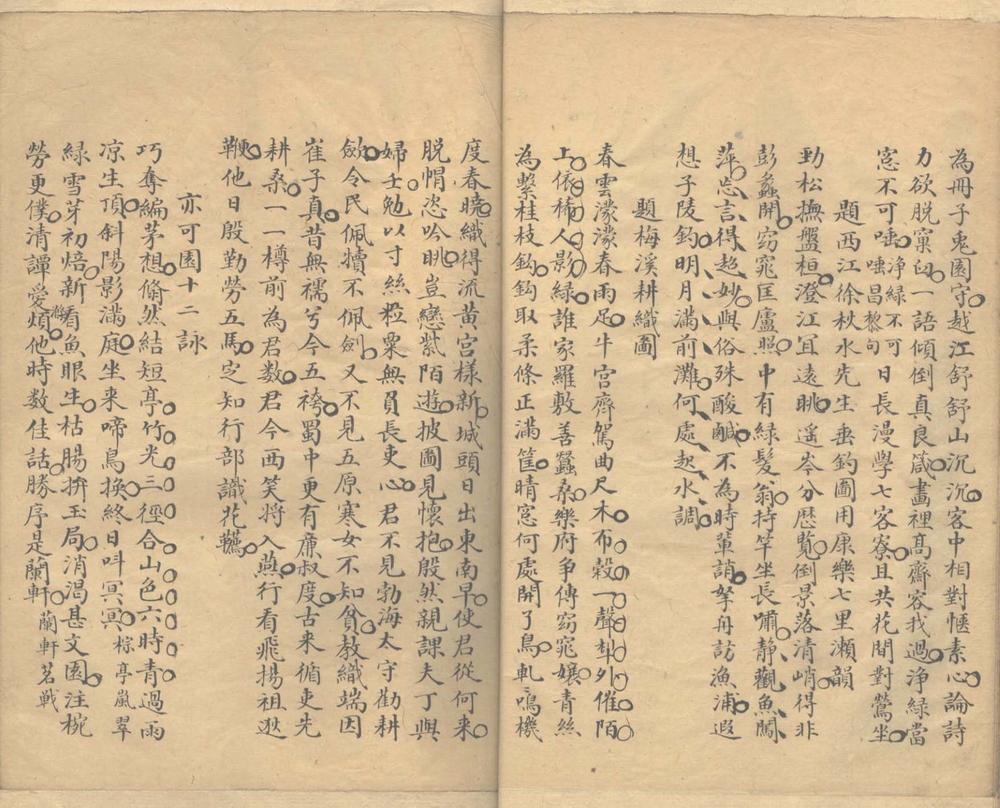 為冊子兎園守越江舒舒山沉沉客中相對愜素心論詩
力欲脫窠臼一語傾倒真良箴畫裡高齋容我過淨緑當
窓不可唾淨緑不可唾昌黎句日長漫學七客寮且共花間對鶯坐
題西江徐秋水先生垂釣圖用康樂七里瀨韻
勁松撫盤桓澄江冝遠眺遥岑分歴覧倒景落清峭得非
彭蠡開窈窕匡廬照中有緑髮翁持竿坐長嘯静觀魚鬬
萍忘言得超妙與俗殊酸鹹不為時輩誚拏舟訪漁浦遐
想子陵釣明月滿前灘何處起水調
題梅溪耕織圖
春雲濛濛春雨足牛宫齊駕曲尺木布穀一聲犁外催陌
上依稀人影緑誰家羅敷善蠶桑樂府争傳窈窕孃青絲
為繫桂枝鈎鈎取柔條正滿筐晴窓何處開了鳥軋鳴機
度春曉織得流黄宫樣新城頭日出東南早使君從何来
脱帽恣吟眺豈戀紫陌遊披圖見懷抱殷然親課夫丁與
婦壬勉以寸絲粒粟無員長吏心君不見勃海太守勸耕
歛令民佩犢不佩劍又不見五原寒女不知貧教織端因
崔子真昔無襦兮今五袴蜀中更有亷叔度古来循吏先
耕桑一一樽前為君数君今西笑将入燕行看飛揚祖逖
鞭他日殷勤勞五馬定知行部識花韉
亦可園十二詠
巧奪編茅想翛然結短亭竹光三徑合山色六時青過雨
凉生頂斜陽影滿庭坐来啼鳥換終日呌冥冥棕亭嵐翠
緑雪芽初焙新看魚眼生枯腸拚玉局消渴甚文園注椀
勞更僕清譚愛煩他時数佳話勝序是蘭軒蘭軒茗戰